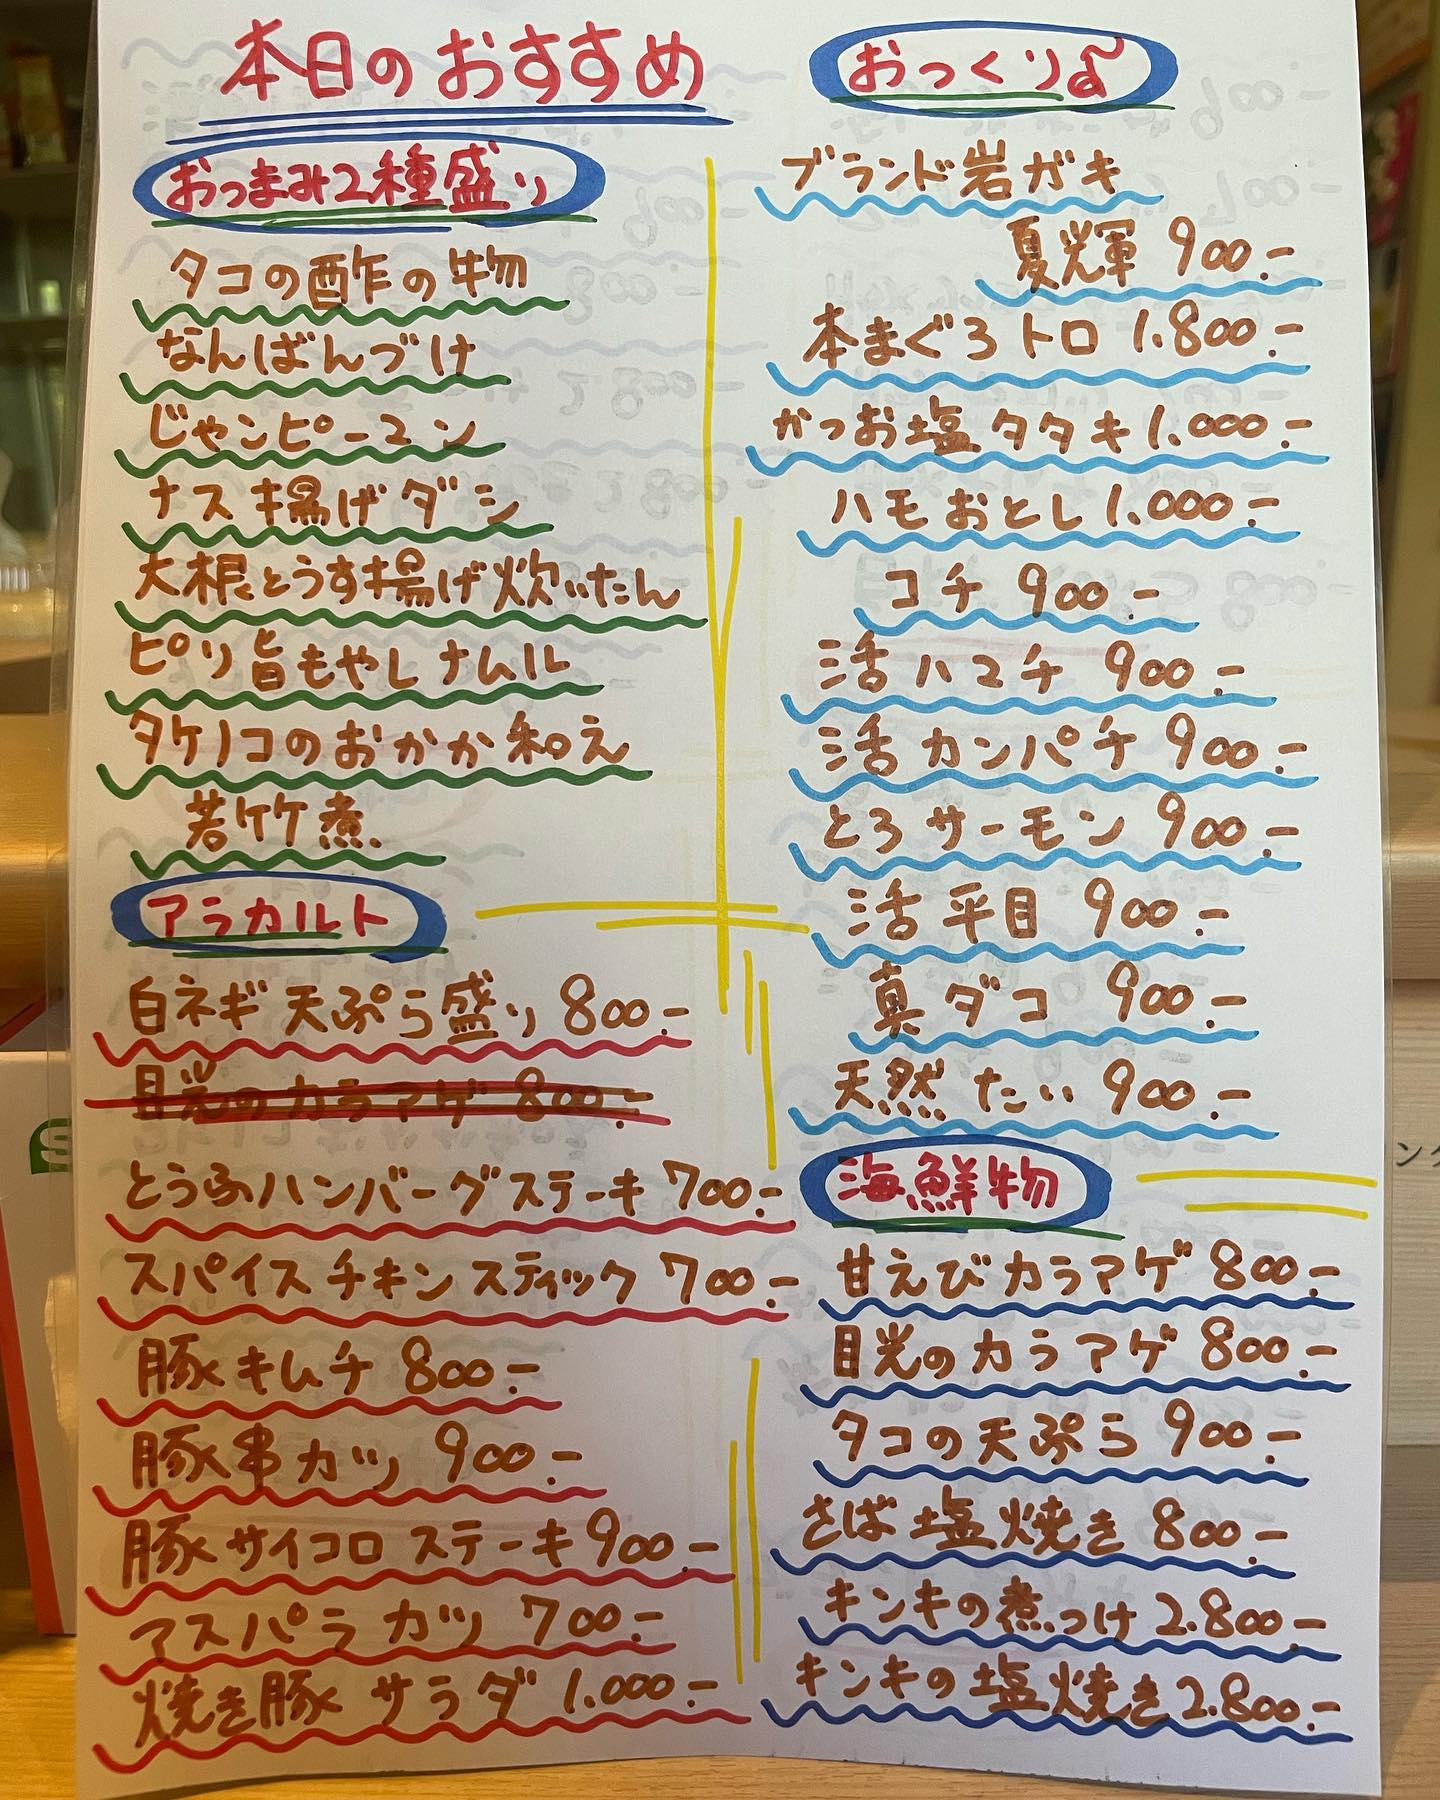 本日のおすすめ
おつまみ2種盛り
タコの酢の物
なんばんづけ
じゃンピーマン
ナス揚げダシ
大根とうす揚げ炊いたん
ピリ旨もやしナムル
タケノコのおかか和え
若竹煮
アラカルト
白ネギ天ぷら盛り 800.-
目光のカラアゲ 800.-
とうふハンバーグステーキ 700.-
スパイスチキンスティック 700.-
豚キムチ 800.-
豚串カツ 900.-
豚サイコロステーキ 900.-
アスパラカツ 700.-
焼き豚サラダ 1.000.-
おつくり
ブランド岩ガキ
夏輝 900.-
本まぐろトロ 1.800.-
かつお塩タタキ 1.000.-
ハモおとし 1.000.-
コチ 900.-
活ハマチ 900.-
活カンパチ 900.-
とろサーモン 900.-
活平目 900.-
真ダコ 900.-
天然たい 900.-
海鮮物
甘えびカラアゲ 800.-
目光のカラアゲ 800.-
タコの天ぷら 900.-
さば塩焼き 800.-
キンキの煮つけ 2.800.-
キンキの塩焼き 2.800.-